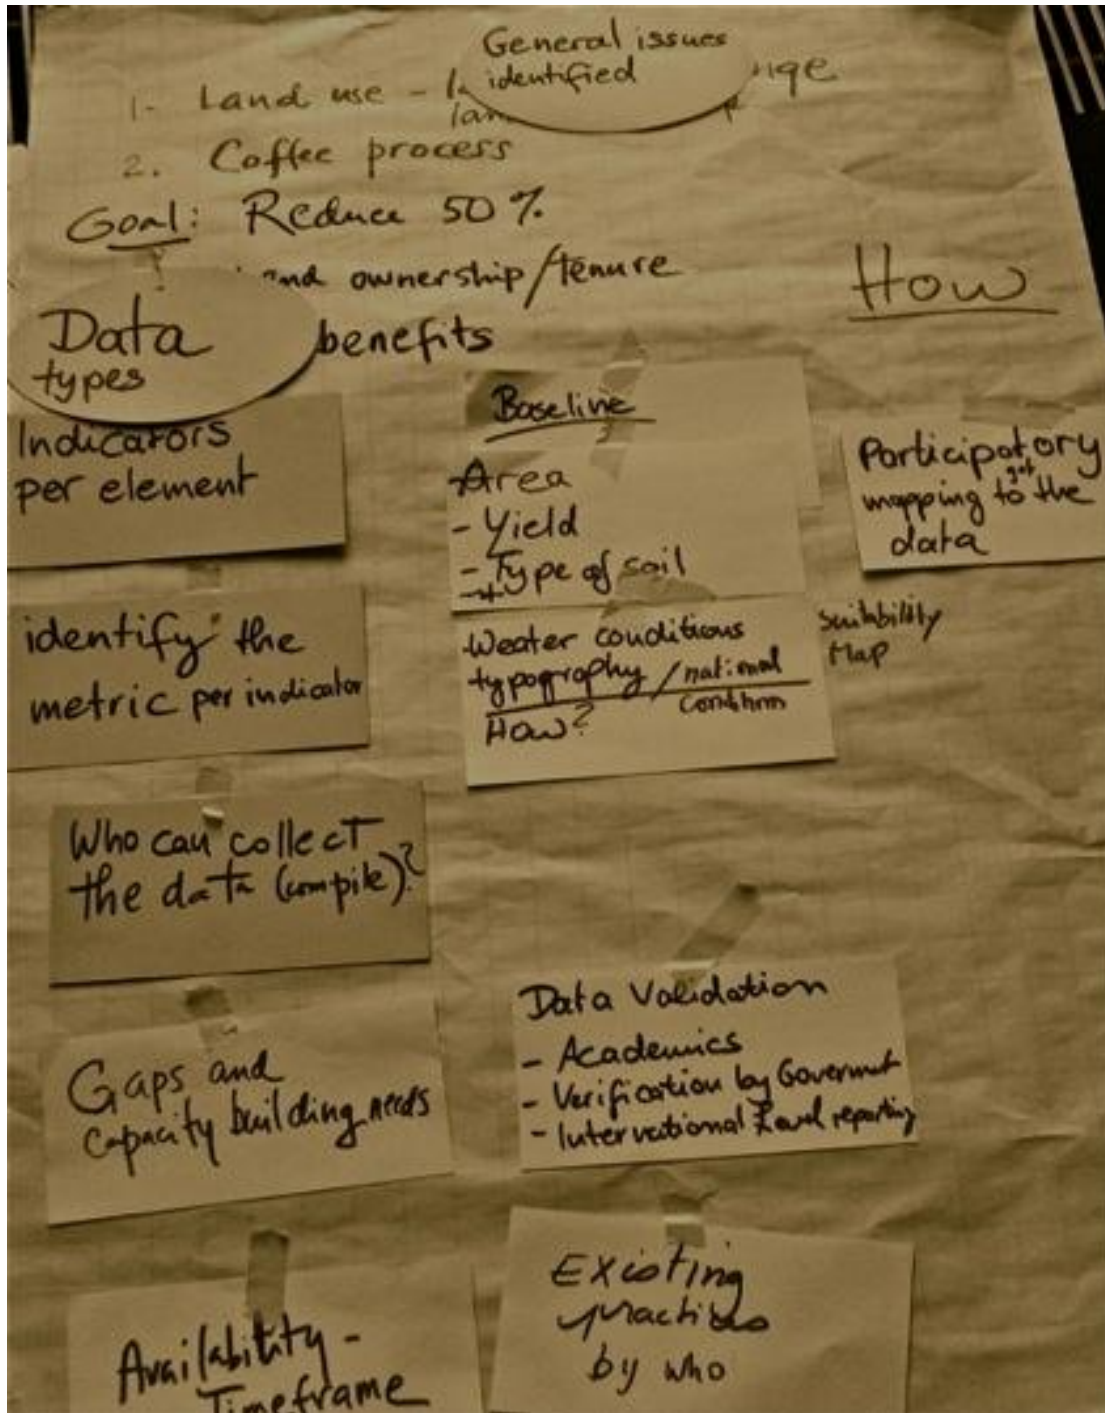 General issues
identified
1- Land use -
2. Coffee process
Goal: Reduce 50%
ownership/tenure
benefits
How
Data
types
Indicators
per element
identify the
metric per indicator
Who can collect
the data (compile)?
Gaps and
capacity building needs
Availability -
Timeframe
Baseline
- Area
- Yield
- Type of soil
- Weater conditions
typography / national
condition
How?
Suitability
Map
Participatory
mapping to get the
data
Data Validation
- Academics
- Verification by Goverment
- International Level reporting
Existing
practices
by who